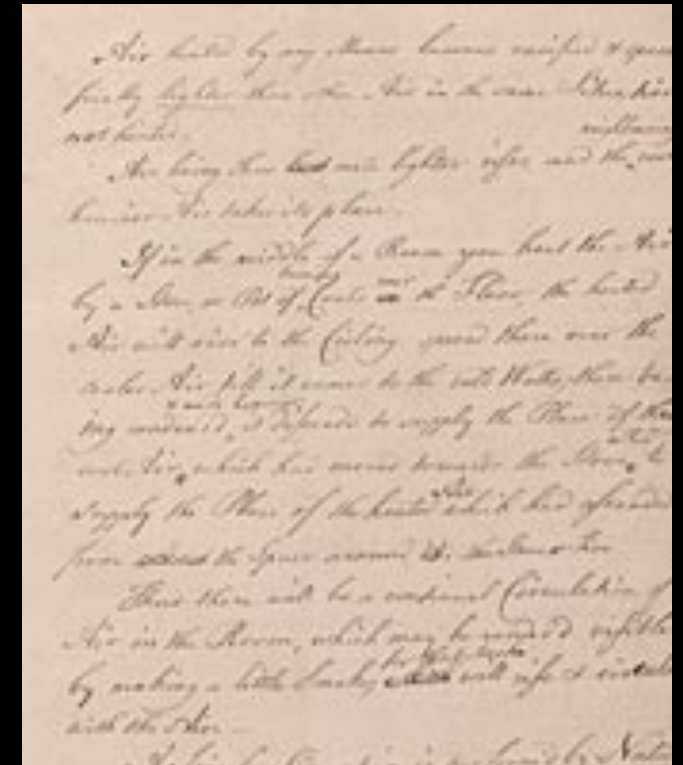 Air heated by any Means becomes rarified &
lighter than other Air in the same
not heated.
Air being thus made lighter rises and the
heavier Air takes its place.
If in the middle of a Room you heat the Air
by a Stove, or Pot of burning Coals near the Floor, the heated
Air will rise to the Cieling, spread there over the
cooler Air till it comes to the cold Walls, there be-
ing condens'd & made heavier, it descends to supply the Place of
cool Air, which had moved towards the Stove, to
supply the Place of the heated Air which had ascended
from the Space around the
Thus there will be a continual Circulation of
Air in the Room, which may be rendered visible
by making a little Smoke, for that Smoke will rise & circulate
with the Air.
by Nature